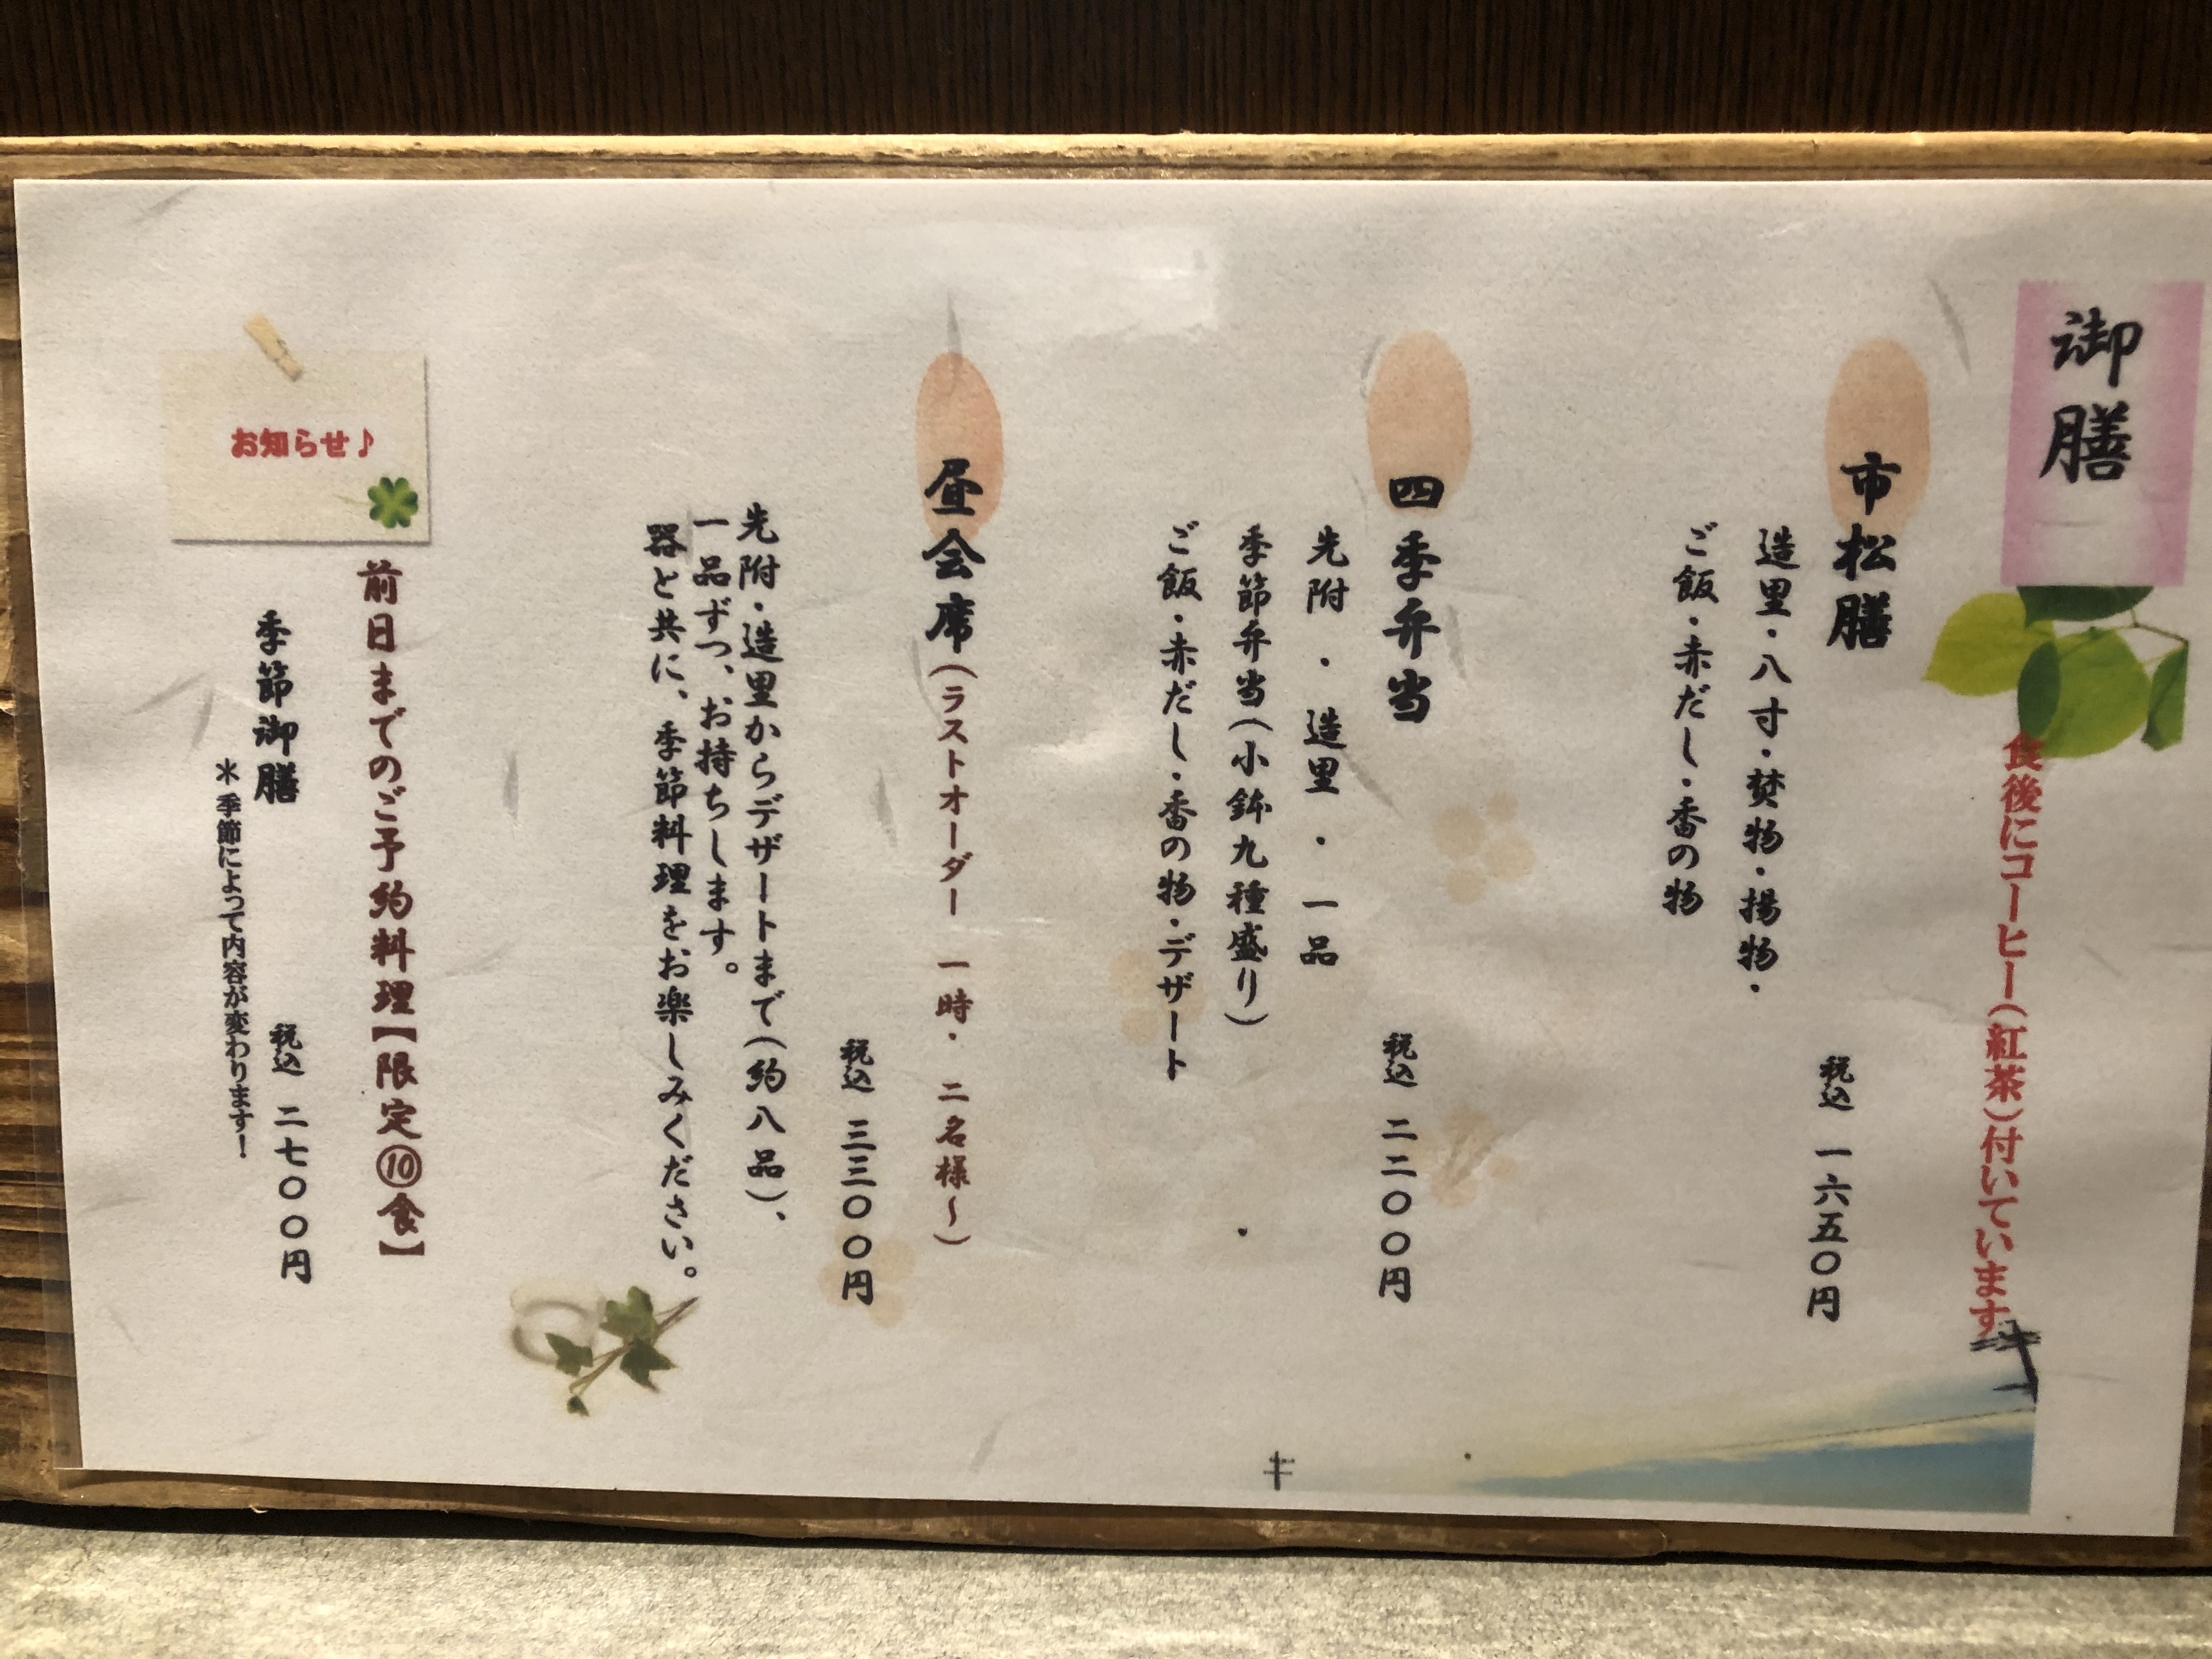 御膳
食後にコーヒー(紅茶)付いています
市松膳
造里・八寸・焚物・揚物・
ご飯・赤だし・香の物
税込 一六五〇円
四季弁当
先附・造里・一品
季節弁当(小鉢九種盛り)
ご飯・赤だし・香の物・デザート
税込 二二〇〇円
昼会席(ラストオーダー 一時・二名様〜)
税込 三三〇〇円
先附・造里からデザートまで(約八品)、
一品ずつ、お持ちします。
器と共に、季節料理をお楽しみください。
お知らせ♪
前日までのご予約料理【限定⑩食】
季節御膳 税込 二七〇〇円
＊季節によって内容が変わります！